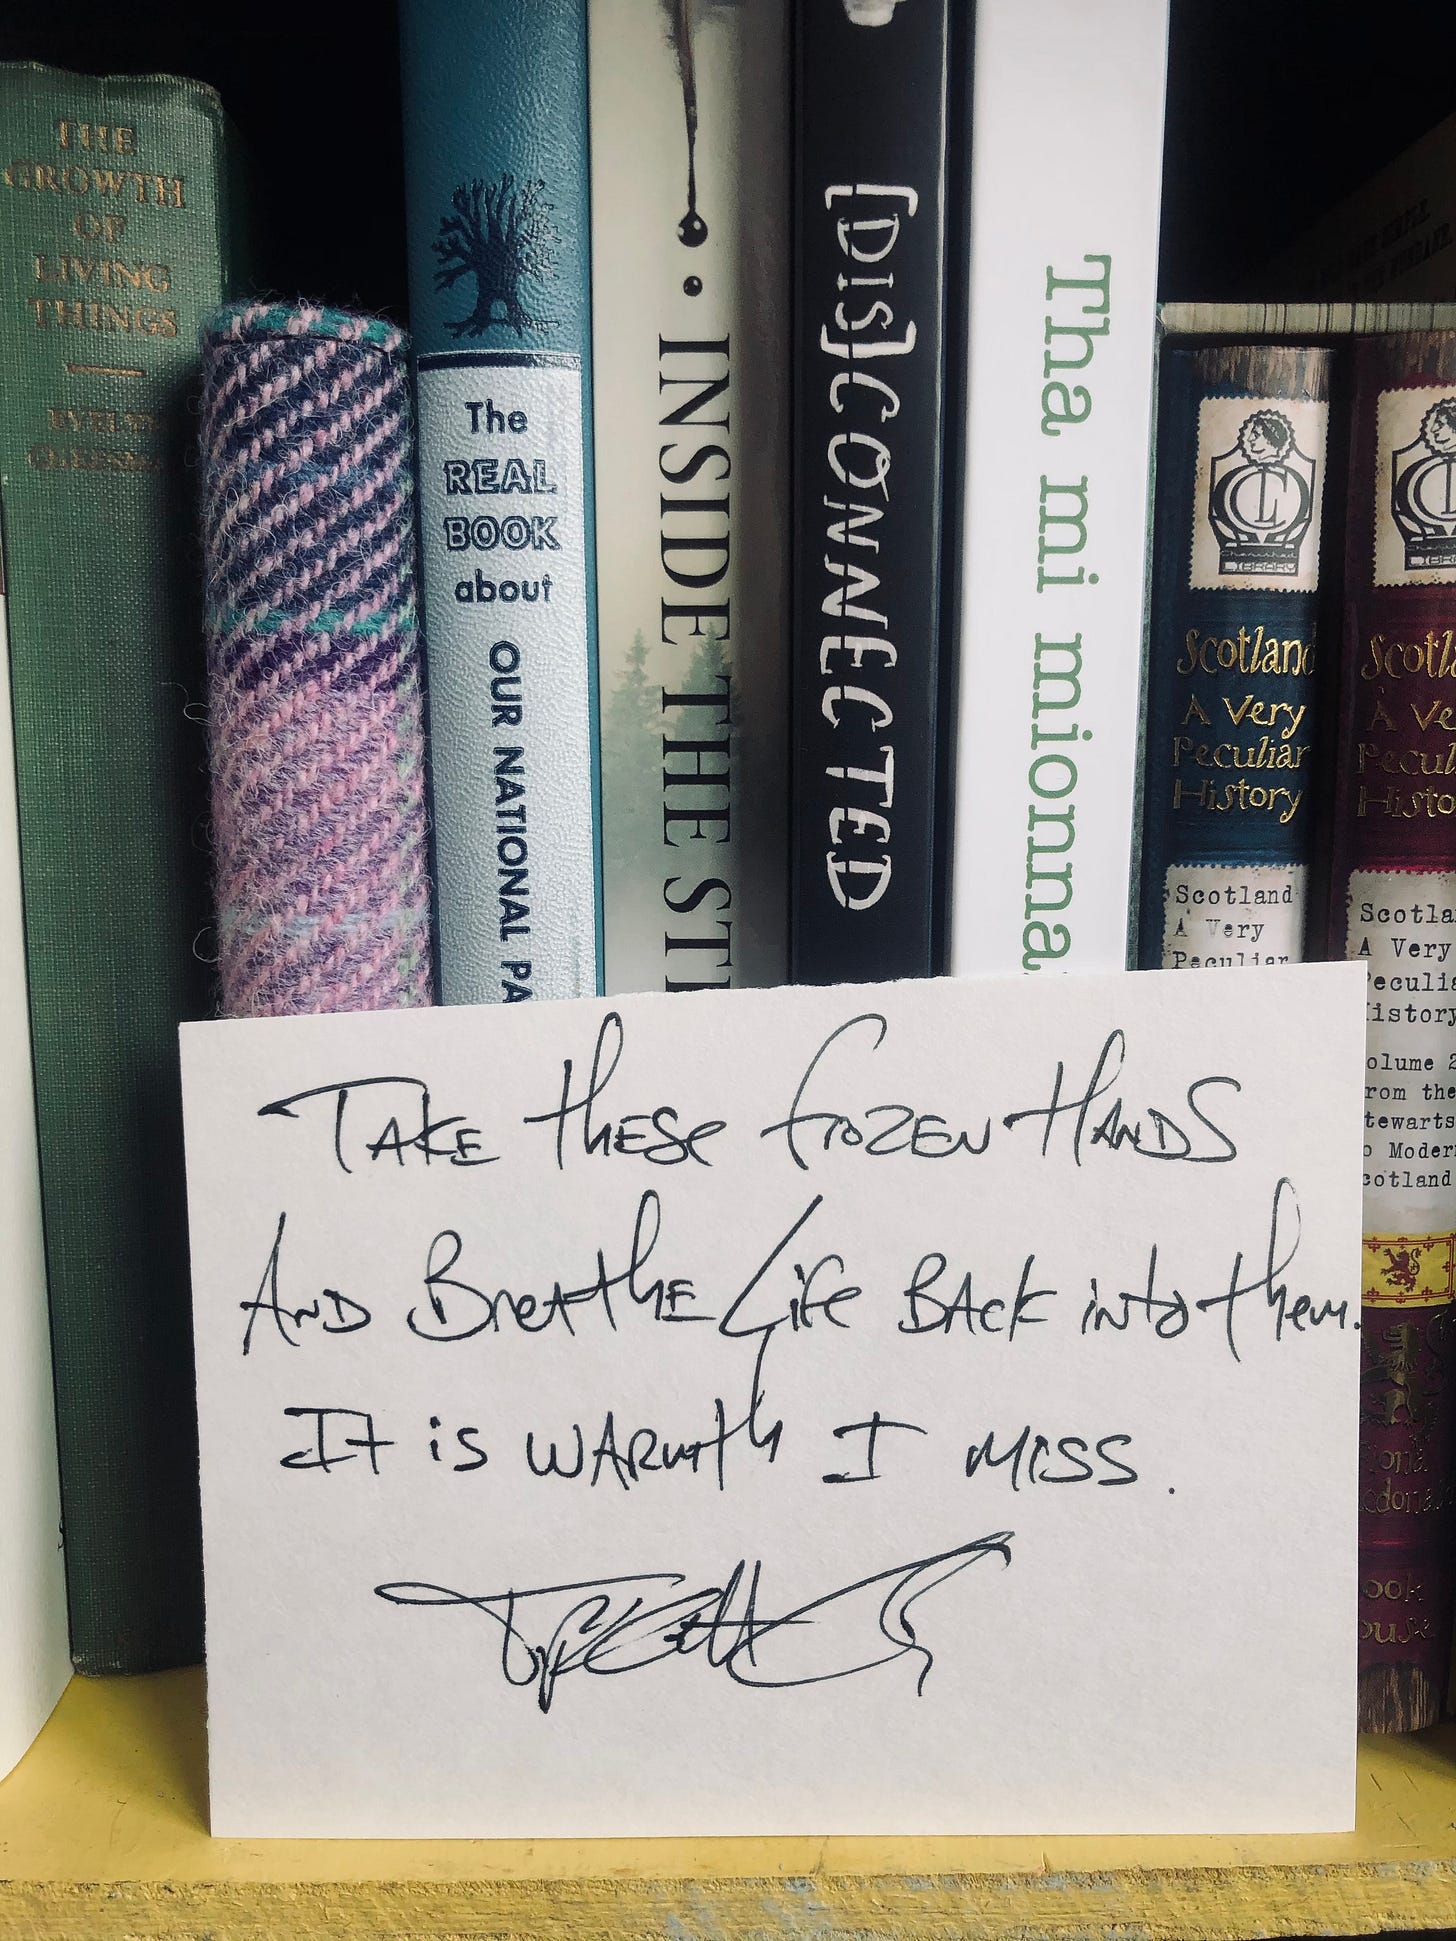 THE
GROWTH
OF
LIVING
THINGS
The
REAL
BOOK
about
OUR NATIONAL PA
INSIDE THE ST
[DIS]CONNECTED
Tha mi mionna
CL
Cherished
LIBRARY
Scotland
A Very
Peculiar
History
Scotland
A Very
Peculiar
CL
LIBR
Scotl
A Ve
Pecul
Histo
Scotla
A Very
eculia
istory
olume 2
rom the
tewarts
o Moder
cotland
ook
ouse
TAKE these frozen HANDS
AND Breathe Life BAck into them.
It is WARmth I miss.